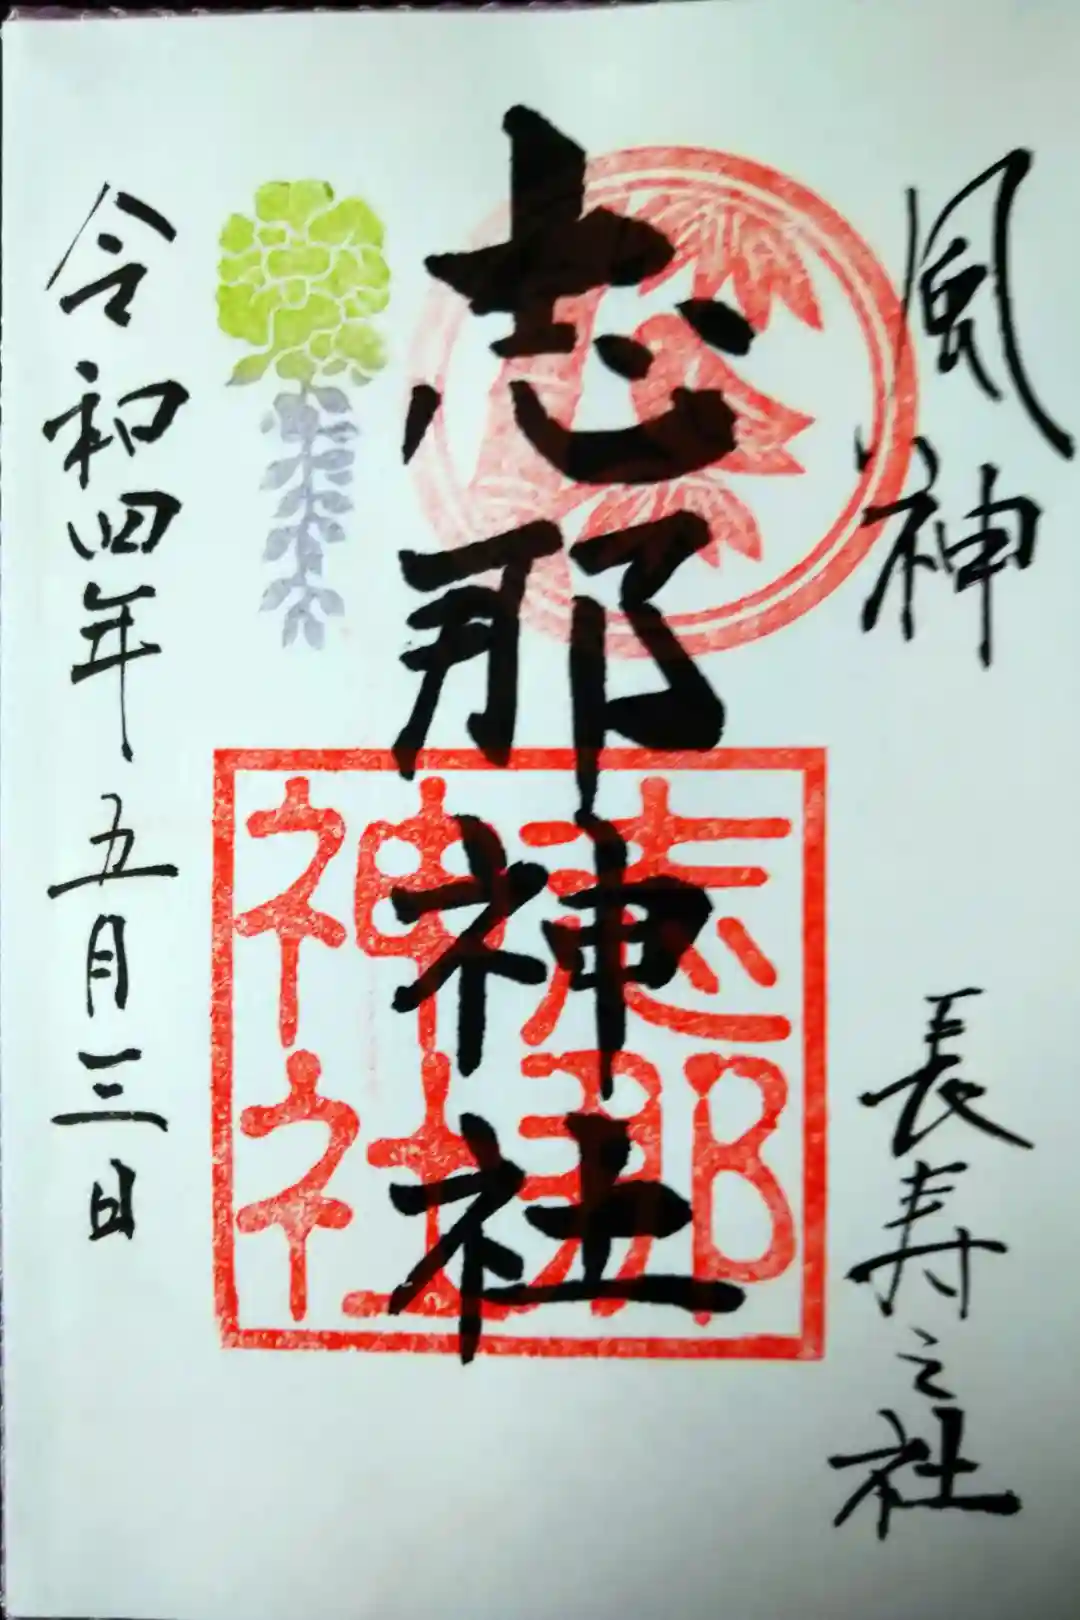 風神
長寿之社
志那神社
志那
神社
令和四年五月三日